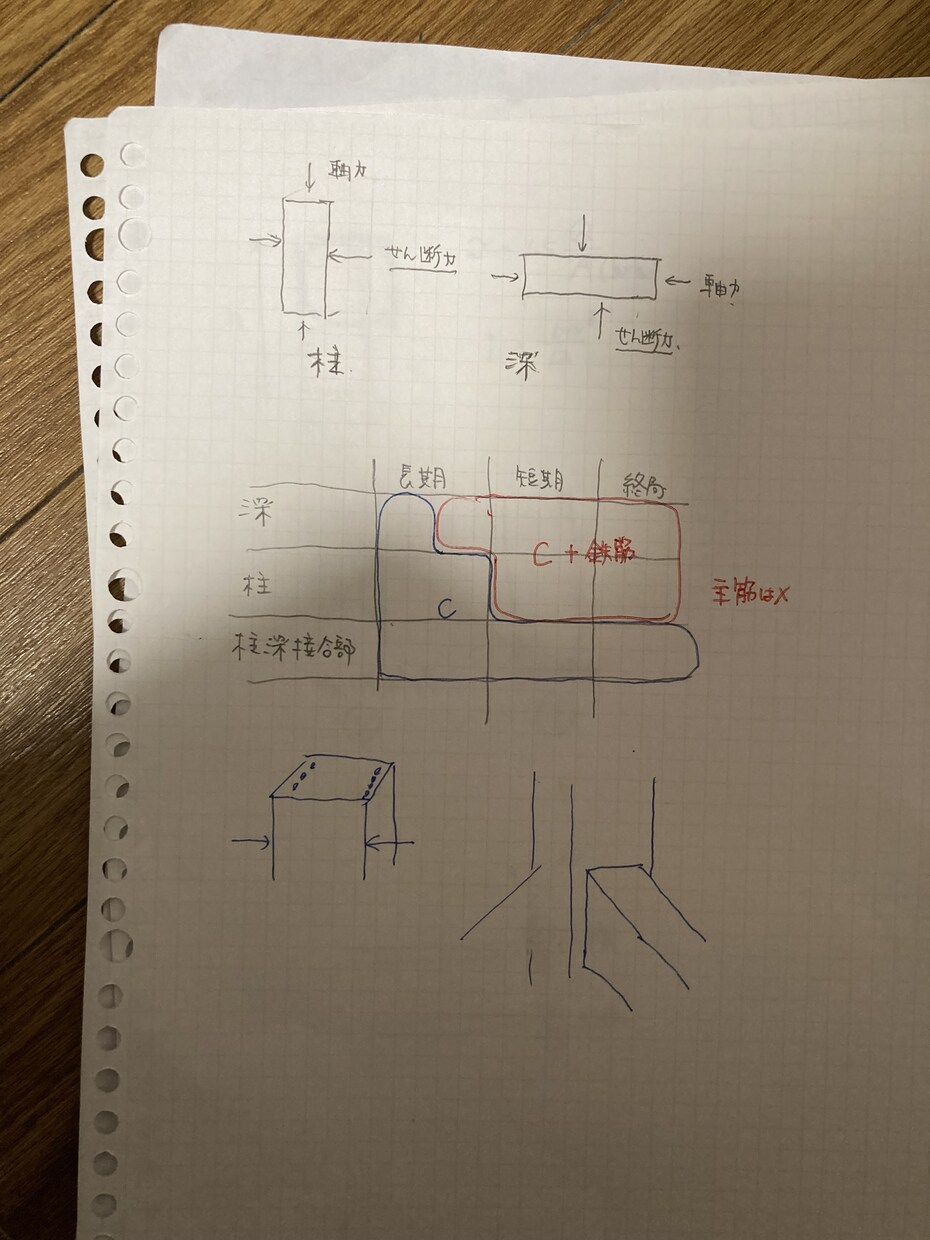 軸力
せん断力
軸力
せん断力
柱
深
長期 短期 終局
深
C + 鉄筋
柱
主筋は×
C
柱深接合部